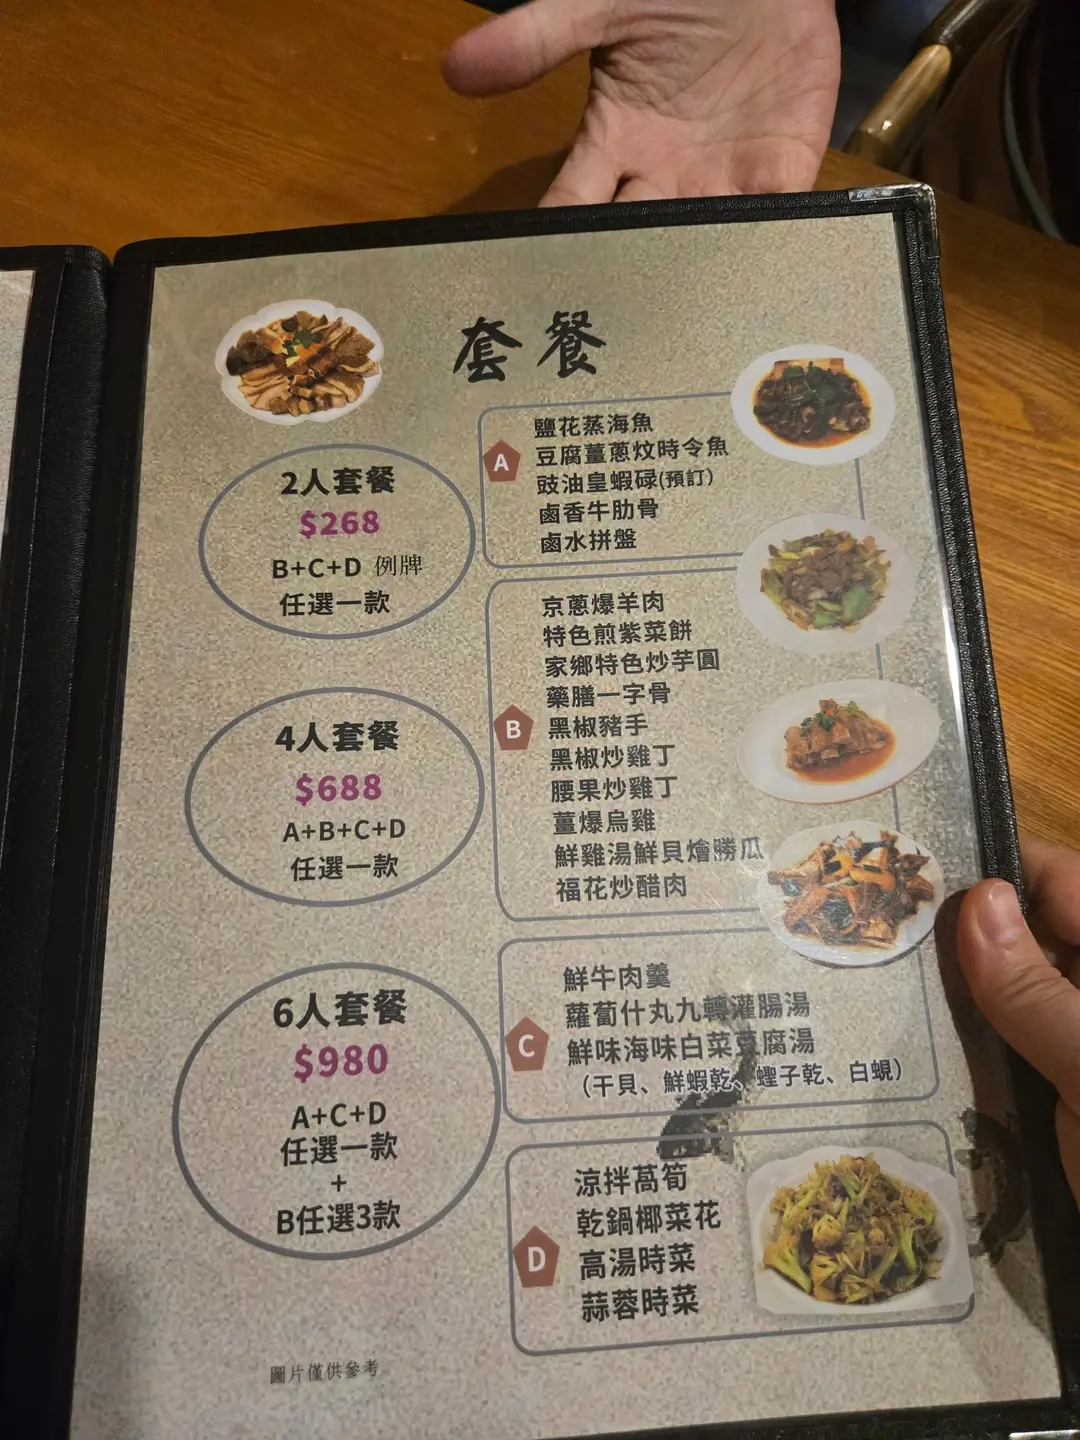 套餐
2人套餐
$268
B+C+D 例牌
任選一款
4人套餐
$688
A+B+C+D
任選一款
6人套餐
$980
A+C+D
任選一款
+
B任選3款
A
鹽花蒸海魚
豆腐薑蔥炆時令魚
豉油皇蝦碌(預訂)
鹵香牛肋骨
鹵水拼盤
B
京蔥爆羊肉
特色煎紫菜餅
家鄉特色炒芋圓
藥膳一字骨
黑椒豬手
黑椒炒雞丁
腰果炒雞丁
薑爆烏雞
鮮雞湯鮮貝燴勝瓜
福花炒醋肉
C
鮮牛肉羹
蘿蔔什丸九轉灌腸湯
鮮味海味白菜豆腐湯
（干貝、鮮蝦乾、蟶子乾、白蜆）
D
涼拌萵筍
乾鍋椰菜花
高湯時菜
蒜蓉時菜
圖片僅供參考